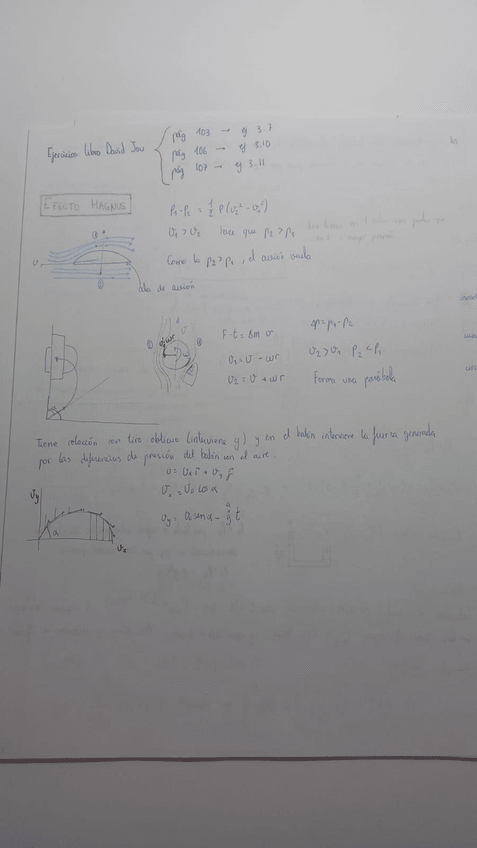 Ejercicios libro David Jou
pág 103 → ej 3.7
pág 106 → ej 3.10
pág 107 → ej 3.11
EFECTO MAGNUS
P₁-P₂ = 1/2 ρ(v₂² - v₁²)
v₁ > v₂ hace que p₂ > p₁
Como la p₂ > p₁, el avión vuela
ala de avión
F·t = Δm v
v₁ = v - ωr
v₂ = v + ωr
Δp = p₁ - p₂
v₂ > v₁ p₂ < p₁
Forma una parábola
Tiene relación con tiro oblicuo (interviene g) y en el balón interviene la fuerza generada
por las diferencias de presión del balón con el aire.
v = vₓ i + v_y j
vₓ = v₀ cos α
v_y = v₀ sen α - g t
v_y
α
vₓ